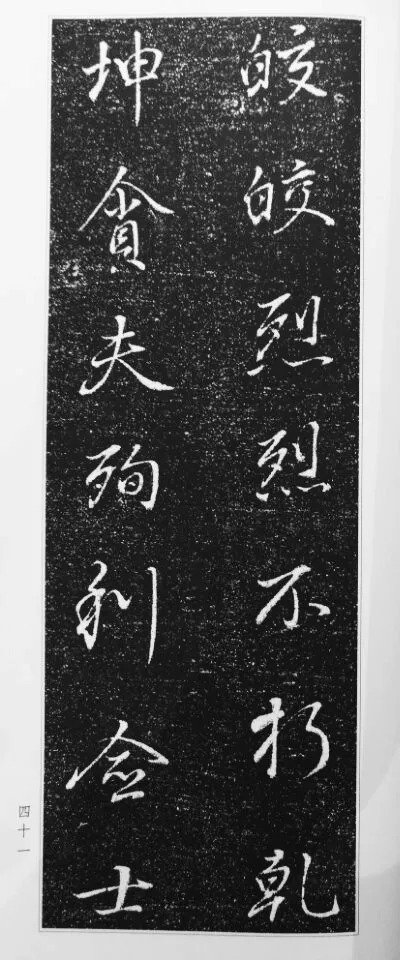 皎皎烈烈不朽乾
坤貪夫殉利念士
四十一